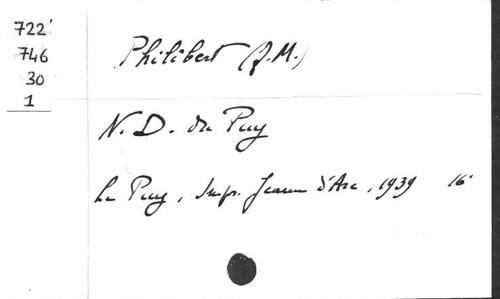 722'
746
30
1
Philibert (J.M.)
N. D. du Puy
Le Puy, Impr. Jeanne d'Arc, 1939 16°